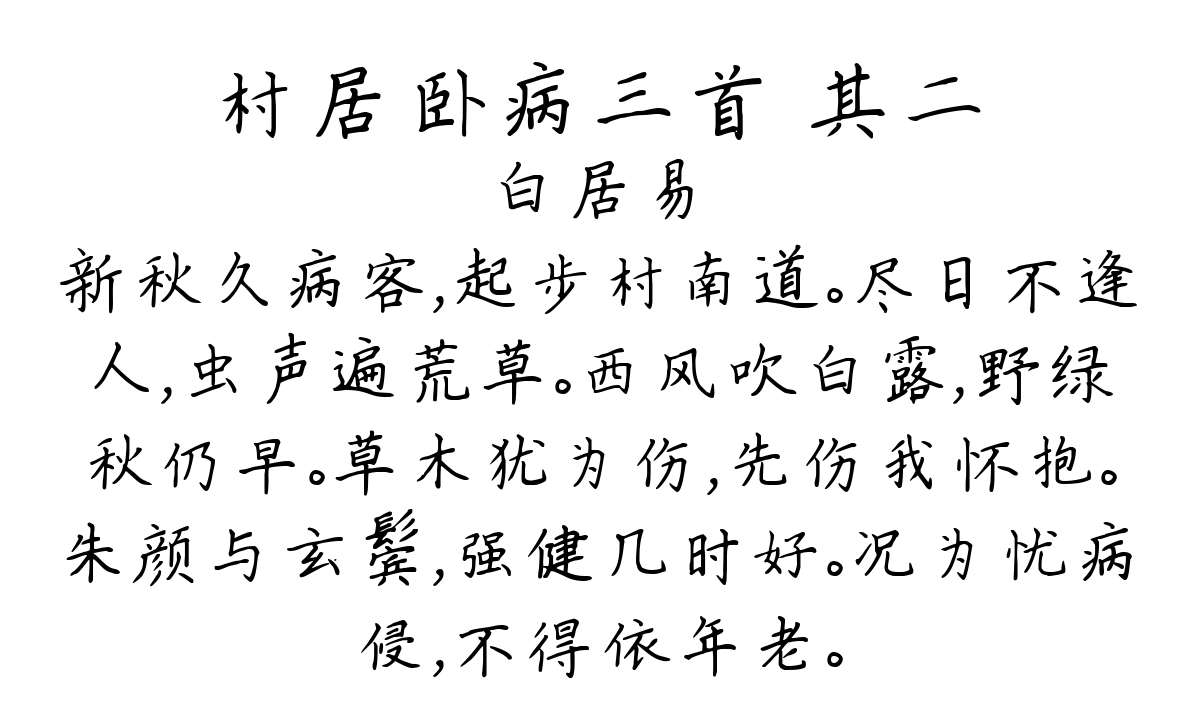 村居卧病三首 其二
白居易
新秋久病客,起步村南道。尽日不逢
人,虫声遍荒草。西风吹白露,野绿
秋仍早。草木犹为伤,先伤我怀抱。
朱颜与玄鬓,强健几时好。况为忧病
侵,不得依年老。